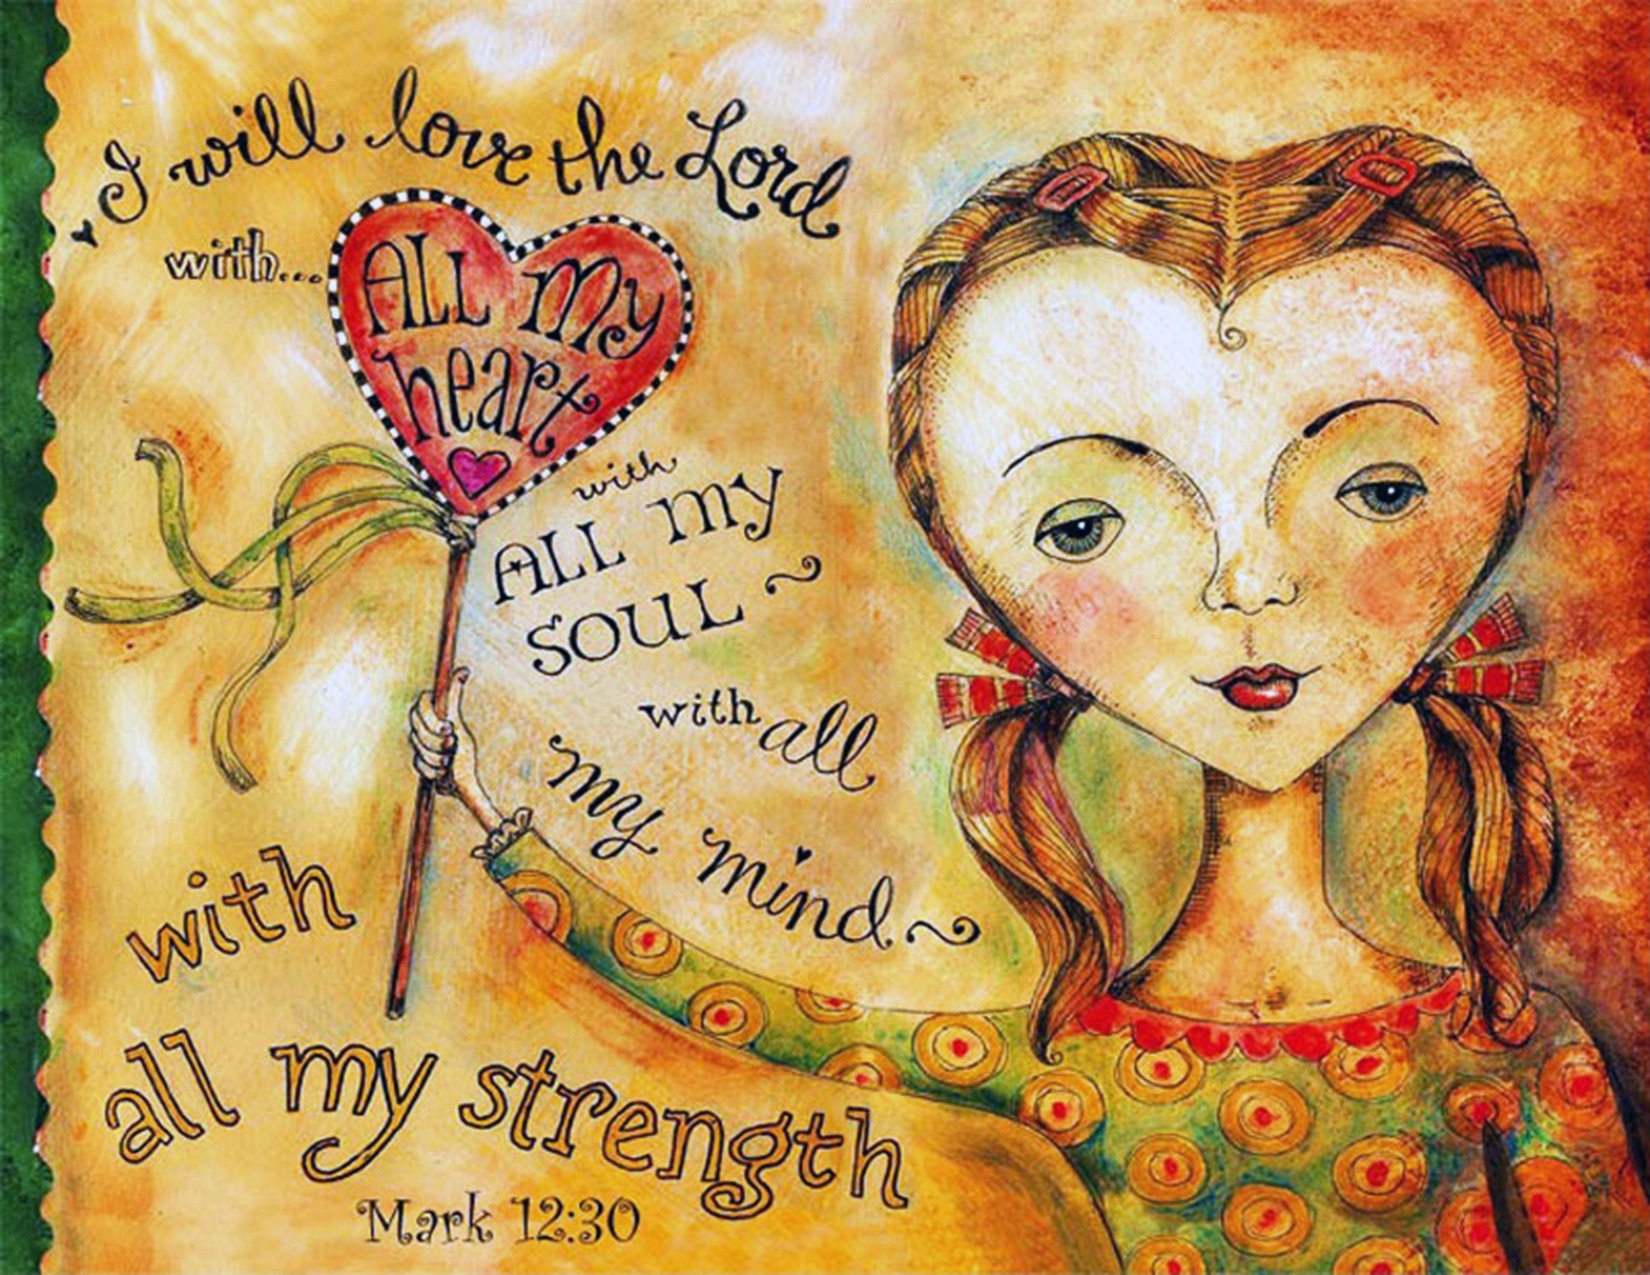 I will love the Lord
with...
ALL my
heart
with
ALL my
SOUL ~
with all
my mind ~
with
all my strength
Mark 12:30